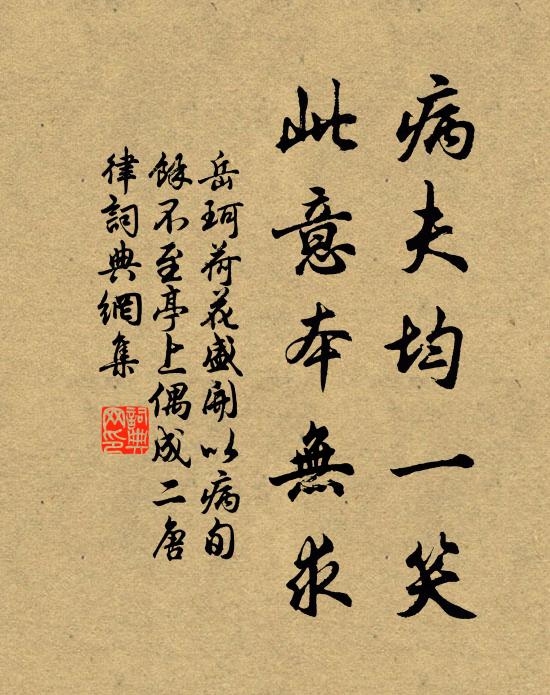 病夫均一笑
此意本無求
岳珂荷花盛開以病旬
餘不至亭上偶成二唐
律詞典網集
詞典網印